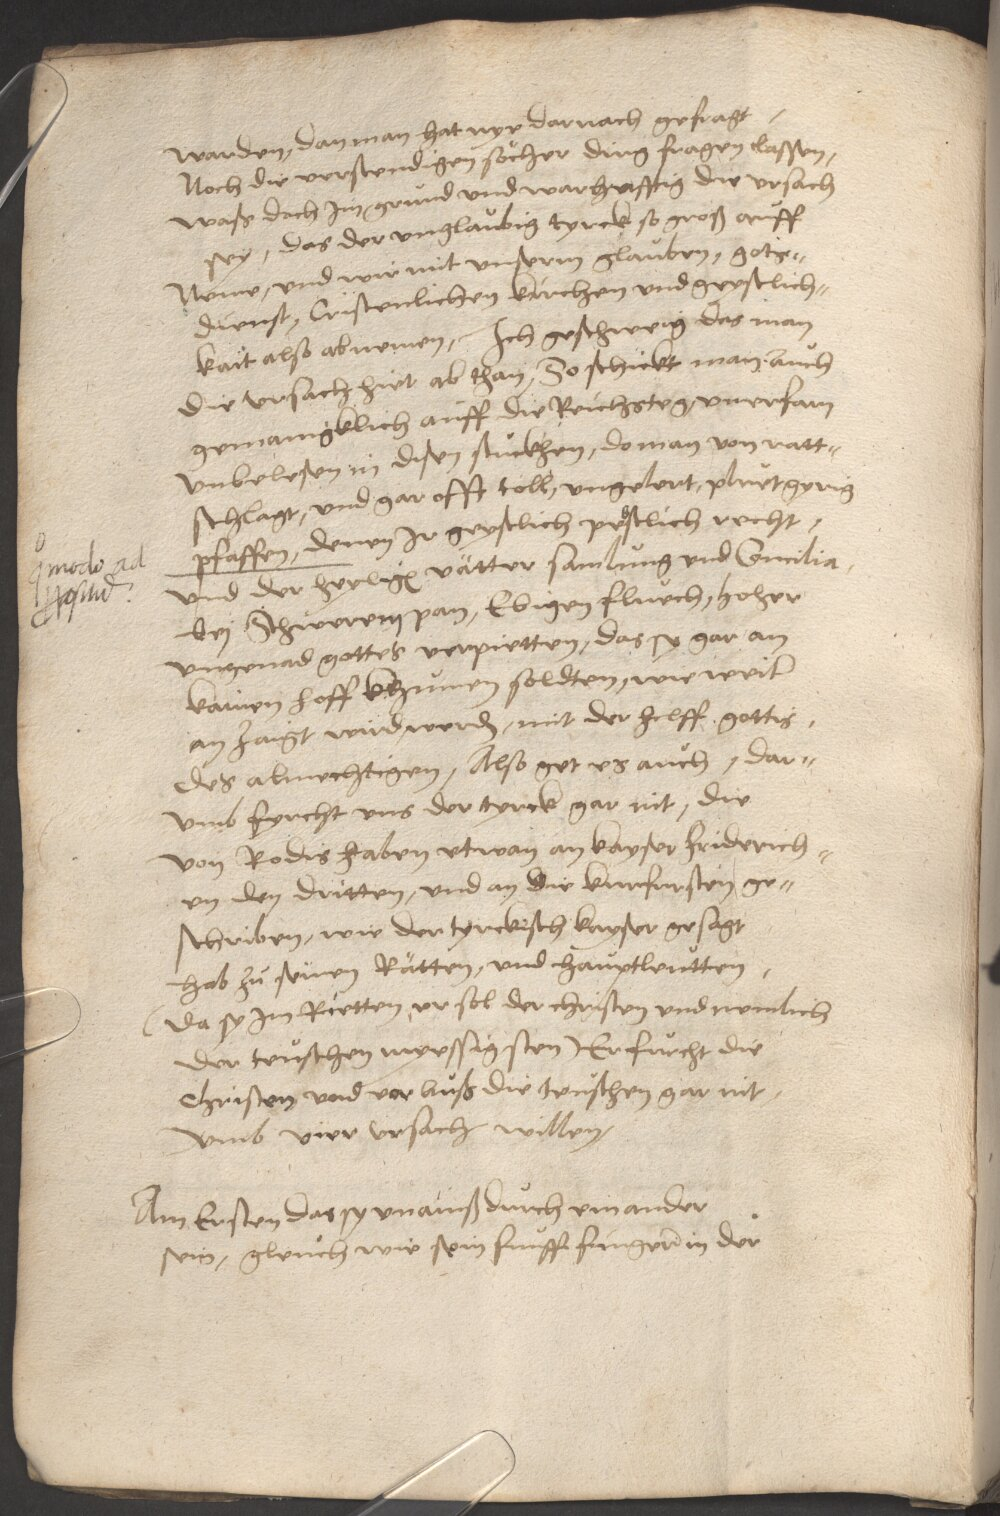 warden, dan man hat nye darnach gefragt,
Noch die verstendigen solcher ding fragen lassen,
waß doch Im grund und warhafftig die ursach
sey, das der unglaubig tyrck so groß auff
Neme, und wir mit unserm glauben, gotz-
dienst, Cristenlichen kirchen und geystlich-
kait also abnemen, Ich geschweig das man
die ursach hiet ab than, So schickt man auch
gemainigklich auff die Reichsteg, unerfarn
unbelesen in disen stuckhen, do man von ratt-
schlagt, und gar offt toll, ungelert, pluetgerig
pfaffen, denen Ir geystlich pebstlich recht,
und der heyligen vätter samlung und Concilia,
bej Schwerem pan, Ebigen fluech, hoher
ungenad gottes verpietten, das sy gar an
kainen hoff khumen soldten, wie weiter
an zaigt wird werden, mit der hilff gottis,
des almechtigen, Also get es auch, dar-
umb fyrcht uns der tyrck gar nit, die
von Rodis haben etwan an kayser Friderich-
en den dritten, und an die kurfursten ge-
schriben, wie der tyrckisch kayser gesagt
hab zu seinen Rätten, und hauptleutten,
(da sy Im Rietten, er sol der christen und nemlich
der teuschen muessig sten) Er furcht die
Christen und vor auß die teuschen gar nit,
umb vier ursach willen,
Am Ersten das sy unainß durch einander
sein, gleuch wie sein funff fingern in der
modo ad